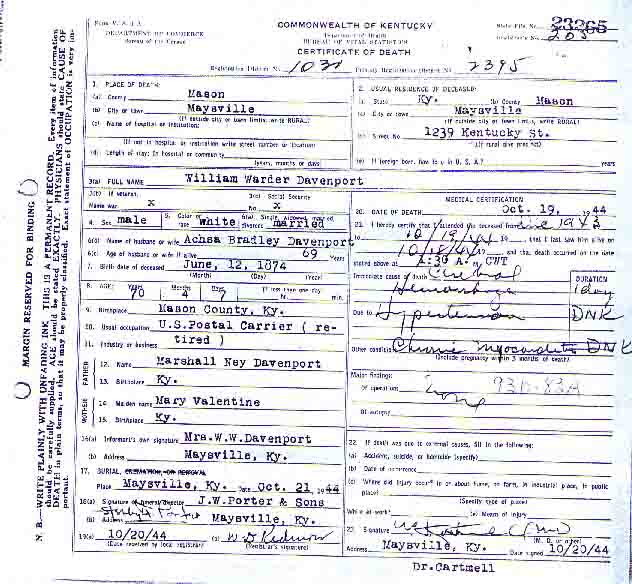 Form V. S. 1 A
DEPARTMENT OF COMMERCE
Bureau of the Census
COMMONWEALTH OF KENTUCKY
Department of Health
BUREAU OF VITAL STATISTICS
CERTIFICATE OF DEATH
State File No. 23365
Registrar's No. 205
Registration District No. 1032 Primary Registration District No. 2395
1. PLACE OF DEATH:
(a) County Mason
(b) City or town Maysville
(If outside city or town limits, write RURAL)
(c) Name of hospital or institution:
(If not in hospital or institution write street number or location)
(d) Length of stay: In hospital or community
(years, months or days)
2. USUAL RESIDENCE OF DECEASED:
(a) State Ky. (b) County Mason
(c) City or town Maysville
(If outside city or town limits, write RURAL)
Street No. 1239 Kentucky St.
(If rural give precinct)
(e) If foreign born, how long in U. S. A.? years
3(a) FULL NAME William Warder Davenport
3(b) If veteran, Name war x
3(c) Social Security No. x
4. Sex male 5. Color or race white 6(a) Single, widowed, married, divorced married
6(b) Name of husband or wife Achsa Bradley Davenport
6(c) Age of husband or wife if alive 69 Years
7. Birth date of deceased June, 12, 1874
(Month) (Day) (Year)
8. AGE: Years 70 Months 4 Days 7 If less than one day hr. min.
9. Birthplace Mason County, Ky.
10. Usual occupation U.S.Postal Carrier ( re-
tired )
11. Industry or business
FATHER
12. Name Marshall Ney Davenport
13. Birthplace Ky.
MOTHER
14. Maiden name Mary Valentine
15. Birthplace Ky.
16(a) Informant's own signature Mrs.W.W.Davenport
(b) Address Maysville, Ky.
17. BURIAL, CREMATION, OR REMOVAL
Place Maysville, Ky. Date Oct. 21, 1944
18(a) Signature of funeral director J.W.Porter & Sons
(b) Address Maysville, Ky.
19(a) 10/20/44
(Date received by local registrar) (Registrar's signature)
MEDICAL CERTIFICATION
20. DATE OF DEATH Oct. 19, 1944
21. I hereby certify that I attended the deceased from
10/19/44 19 , that I last saw him alive on
10/18/44 19 , and that death occurred on the date
stated above at 1:30 A. M. CWT
Immediate cause of death Cerebral
Hemorrhage 1 day
DURATION
Due to Hypertension DNK
Other conditions Chronic myocarditis DNK
(Include pregnancy within 3 months of death)
Major findings:
Of operations none
93D-83A
Of autopsy
22. If death was due to external causes, fill in the following:
(a) Accident, suicide, or homicide (specify)
(b) Date of occurrence
(c) Where did injury occur? in or about home, on farm, in industrial place, in public place?
(Specify type of place)
While at work? (e) Means of injury
23. Signature
(M. D. or other)
Address Maysville, Ky. Date signed 10/20/44
Dr.Cartmell
MARGIN RESERVED FOR BINDING
N. B.—WRITE PLAINLY, WITH UNFADING INK. THIS IS A PERMANENT RECORD. Every item of information
should be carefully supplied. AGE should be stated EXACTLY. PHYSICIANS should state CAUSE OF
DEATH in plain terms, so that it may be properly classified. Exact statement of OCCUPATION is very im-
portant.